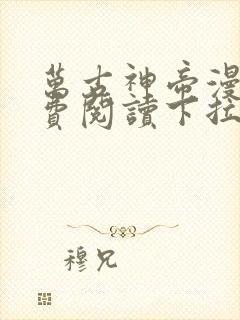 萬古神帝漫
費閱讀下拉
穆兄